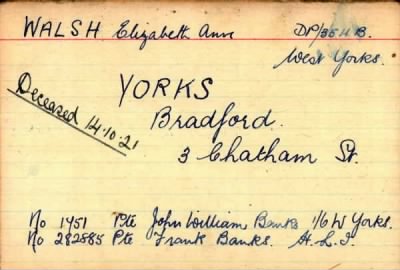 WALSH Elizabeth Ann DP/3541B.
West Yorks.
YORKS
Deceased 14.10.21
Bradford.
3 Chatham St.
No 1951 Pte John William Banks 1/6 W Yorks.
No 282585 Pte Frank Banks. H.L.I.